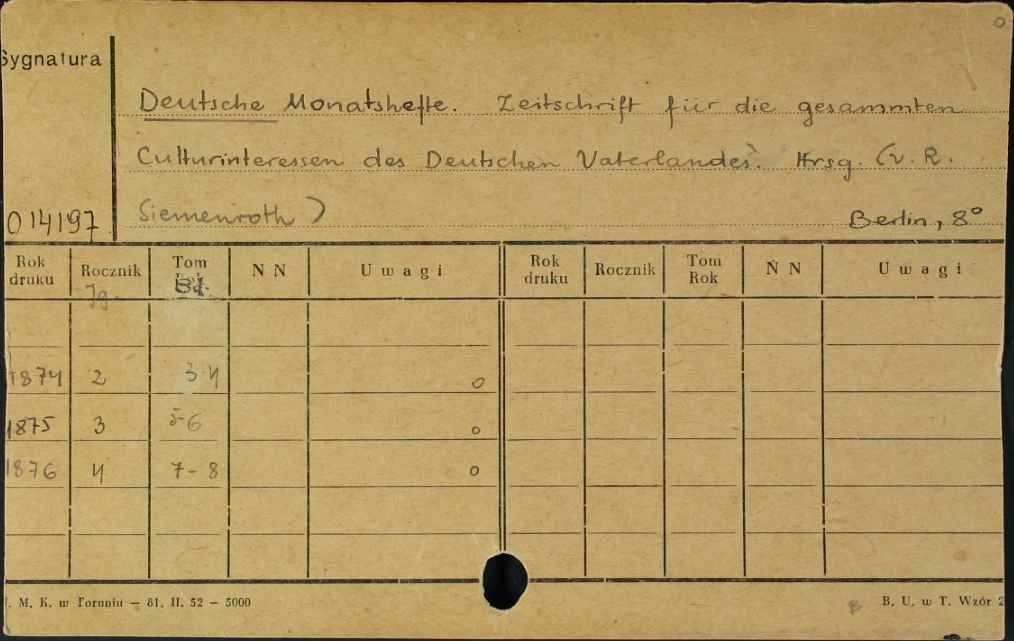 o
Sygnatura
Deutsche Monatshefte. Zeitschrift für die gesammten
Culturinteressen des Deutschen Vaterlandes. Hrsg. (v. R.
014197 Siemenroth) Berlin, 8°
Rok druku Rocznik Tom N N Uwagi Rok druku Rocznik Tom Rok N N Uwagi
Jg. Bd.
1874 2 3 4 o
1875 3 5-6 o
1876 4 7-8 o
. M. K. w Toruniu — 81. II. 52 — 5000 B. U. w T. Wzór 2